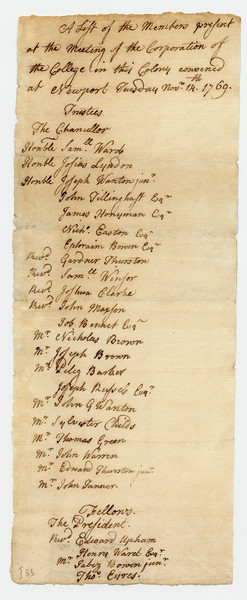 A List of the Members present
at the Meeting of the Corporation of
the College in this Colony convened
at Newport Tuesday Nov.r 14.th 1769.
Trustees
The Chancellor
Honble Sam.ll Ward
Honble Josias Lyndon
Honble Joseph Wanton jun.r
John Tillinghast Esq.r
James Honyman Esq.r
Nich.s Easton Esq.r
Ephraim Bowen Esq.r
Rev.d Gardner Thurston
Rev.d Sam.ll Winsor
Rev.d Joshua Clarke
Rev.d John Maxson
Job Bennet Esq.r
M.r Nicholas Brown
M.r Joseph Brown
M.r Peleg Barker
Joseph Russel Esq.r
M.r John G Wanton
M.r Sylvester Childs
M.r Thomas Green
M.r John Warren
M.r Edward Thurston jun.r
M.r John Tanner.
Fellows.
The President.
Rev.d Edward Upham
Henry Ward Esq.r
M.r Jabez Bowen jun.r
Tho.s Eyres.